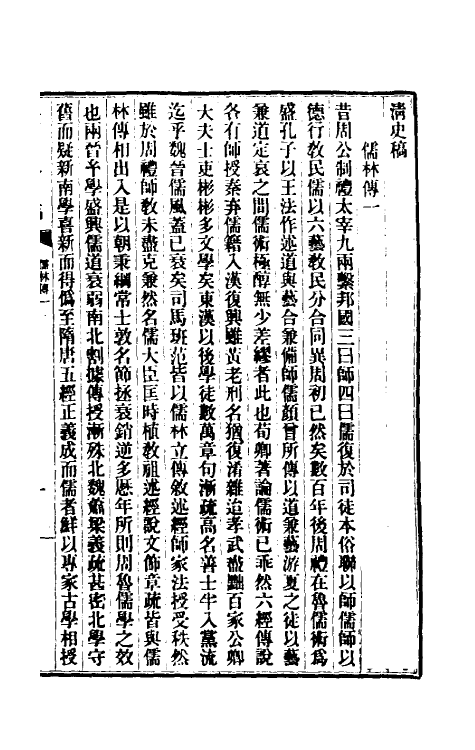 清史稿
儒林傳一
昔周公制禮太宰九兩繫邦國三曰師四曰儒復於司徒本俗聯以師儒師以
德行教民儒以六藝教民分合同異周初已然矣數百年後周禮在魯儒術爲
盛孔子以王法作述道與藝合兼備師儒顏曾所傳以道兼藝游夏之徒以藝
兼道定哀之間儒術極醇無少差繆者此也荀卿著論儒術已乖然六經傳說
各有師授秦弃儒籍入漢復興雖黃老刑名猶復淆雜迨孝武盡黜百家公卿
大夫士吏彬彬多文學矣東漢以後學徒數萬章句漸疏高名善士半入黨流
迄乎魏晉儒風蓋已衰矣司馬班范皆以儒林立傳敘述經師家法授受秩然
雖於周禮師教未盡克兼然名儒大臣匡時植教祖述經說文飾章疏皆與儒
林傳相出入是以朝秉綱常士敦名節拯衰銷逆多歷年所則周魯儒學之效
也兩晉玄學盛興儒道衰弱南北割據傳授漸殊北魏蕭梁義疏甚密北學守
舊而疑新南學喜新而得僞至隋唐五經正義成而儒者鮮以專家古學相授
儒林傳一
一